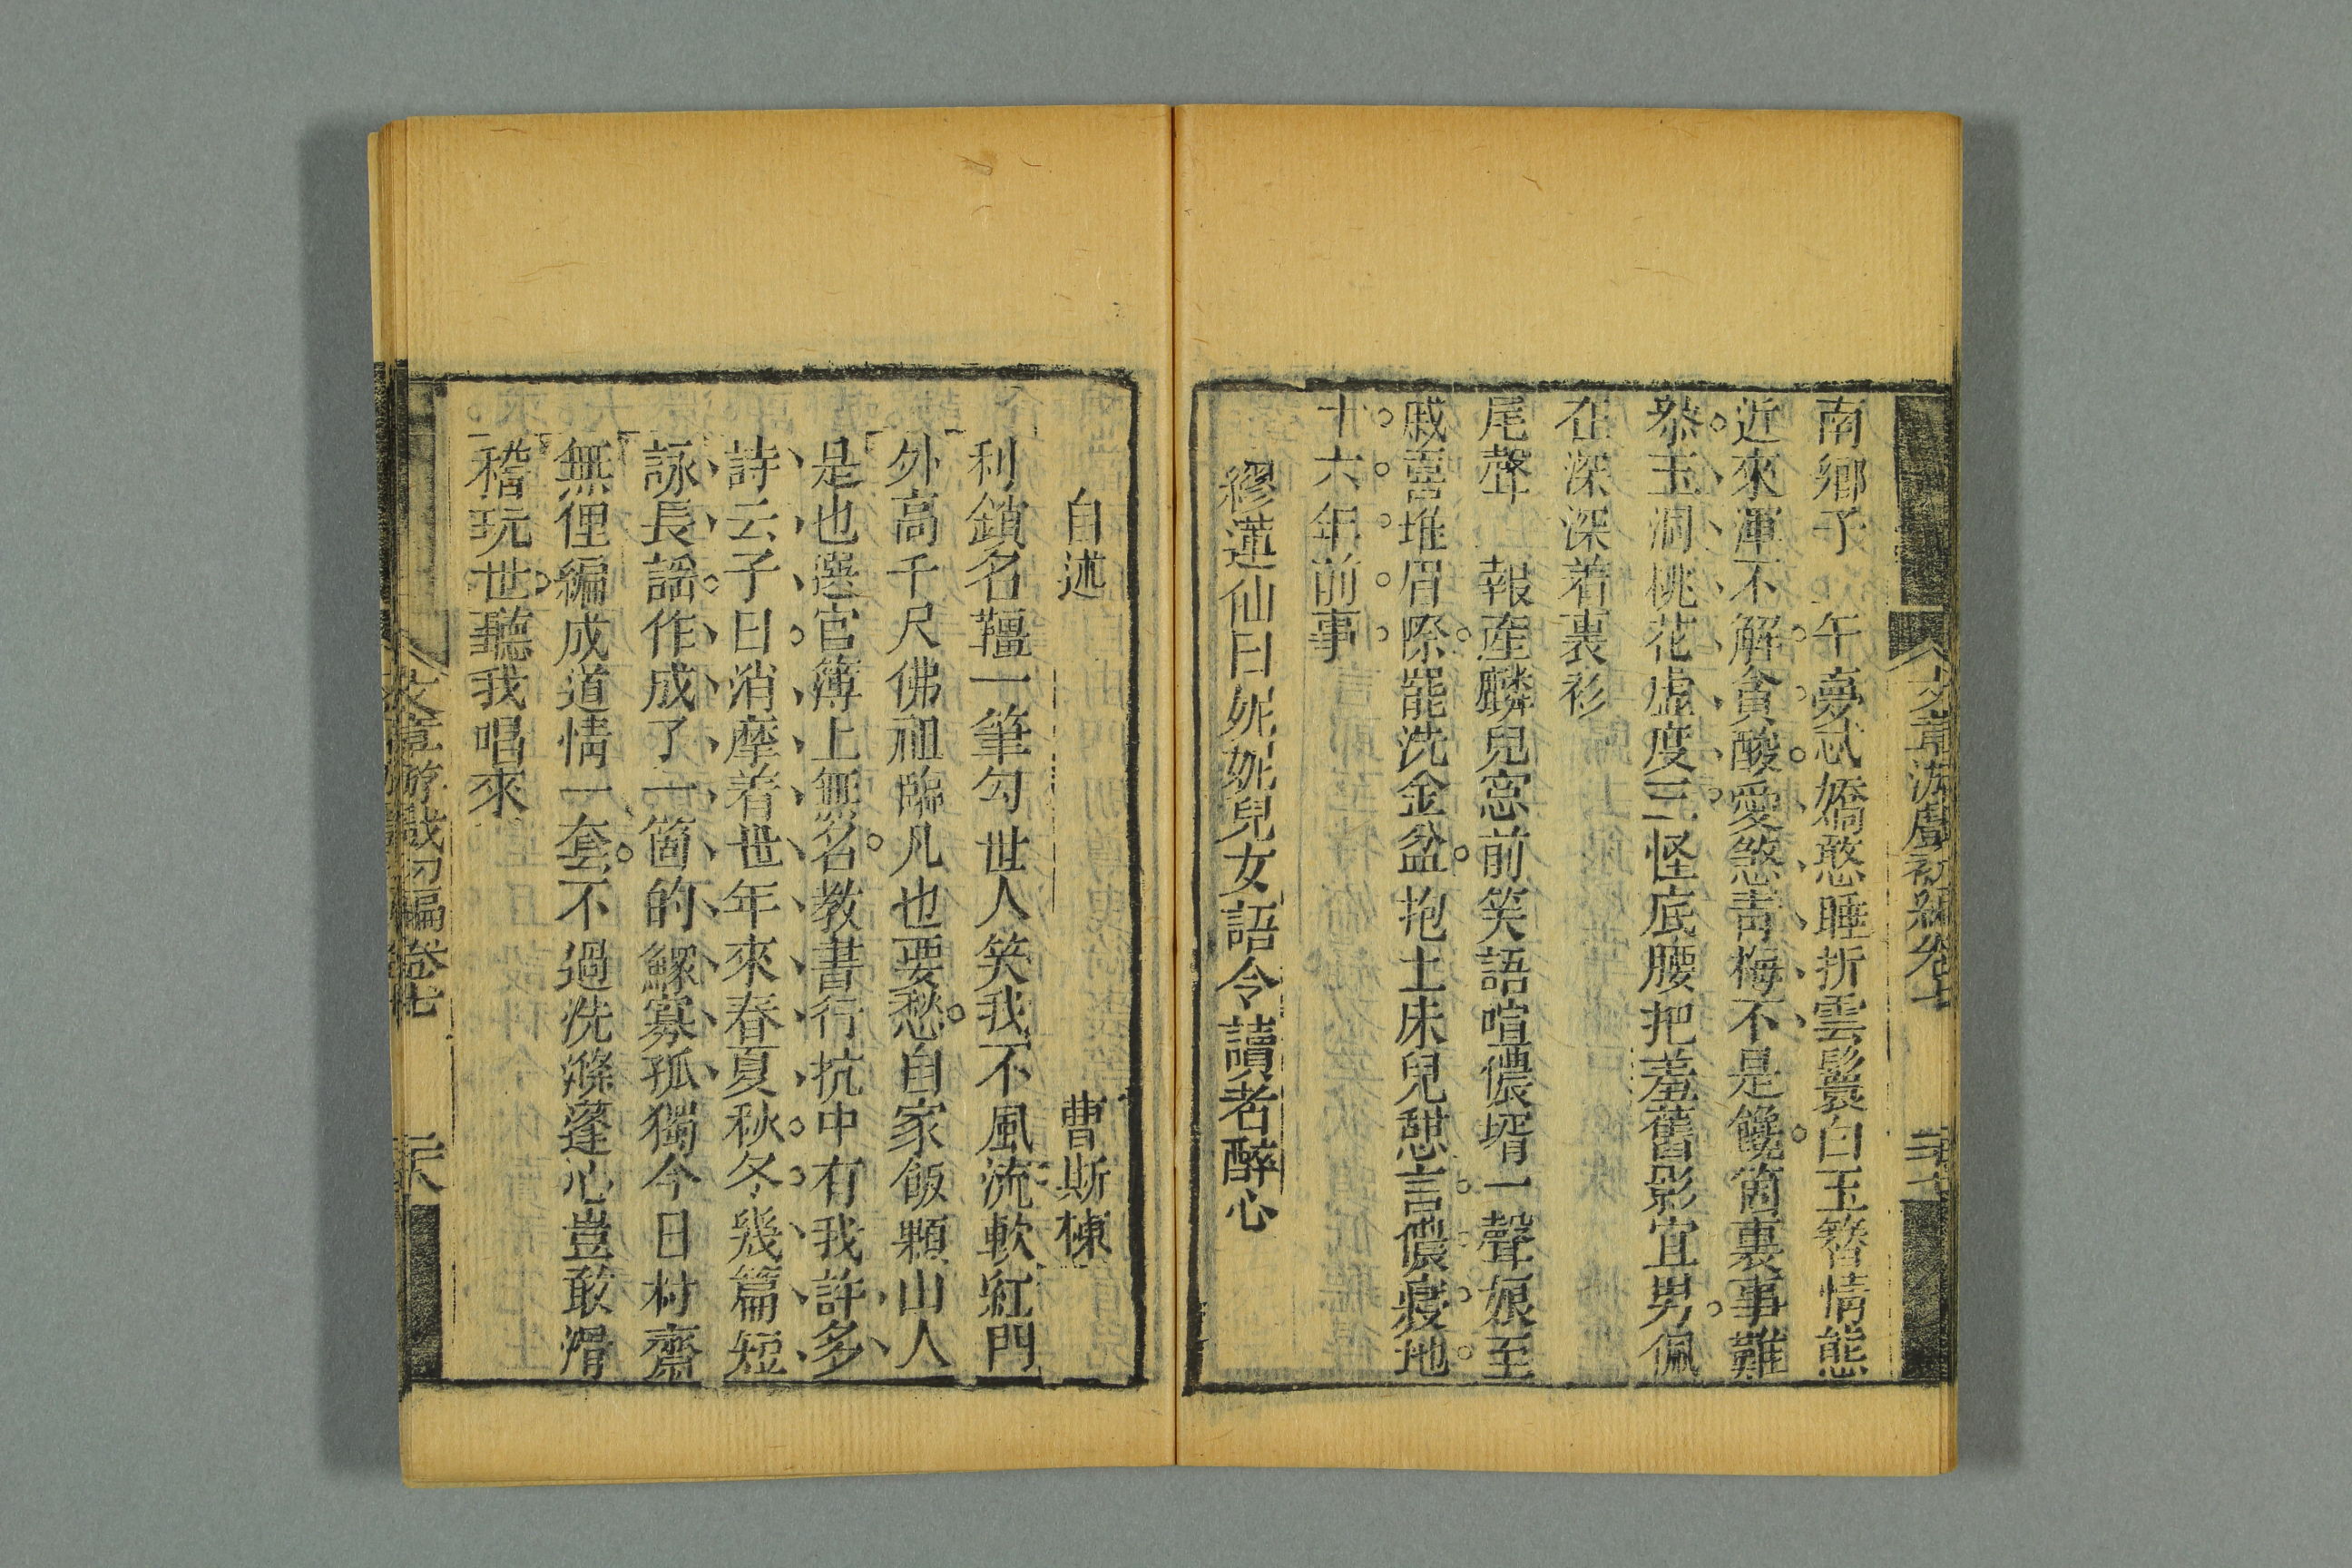 文章游戲初編卷七
南鄉子 午夢忒嬌憨睡折雲鬟白玉簪情態
近來渾不解貪酸愛煞青梅不是饞箇裏事難
叅玉洞桃花虛度三怪底腰把羞舊影宜男佩
在深深着裏衫
尾聲 報産麟兒窓前笑語喧儂壻一聲娘至
戚喜堆眉際罷洗金盆抱上床兒憩言儂寢地
十六年前事
繆蓮仙曰妮妮兒女語令讀者醉心
自述 曹斯棟
利鎖名韁一筆勾世人笑我不風流軟紅門
外高千尺佛祖臨凡也要愁自家飯顆山人
是也選官簿上無名教書行抗中有我許多
詩云子曰消摩着世年來春夏秋冬幾篇短
詠長謠作成了一箇的鰥寡孤獨今日村齋
無俚編成道情一套不過洗滌蓬心豈敢滑
稽玩世聽我唱來
文章游戲初編卷七